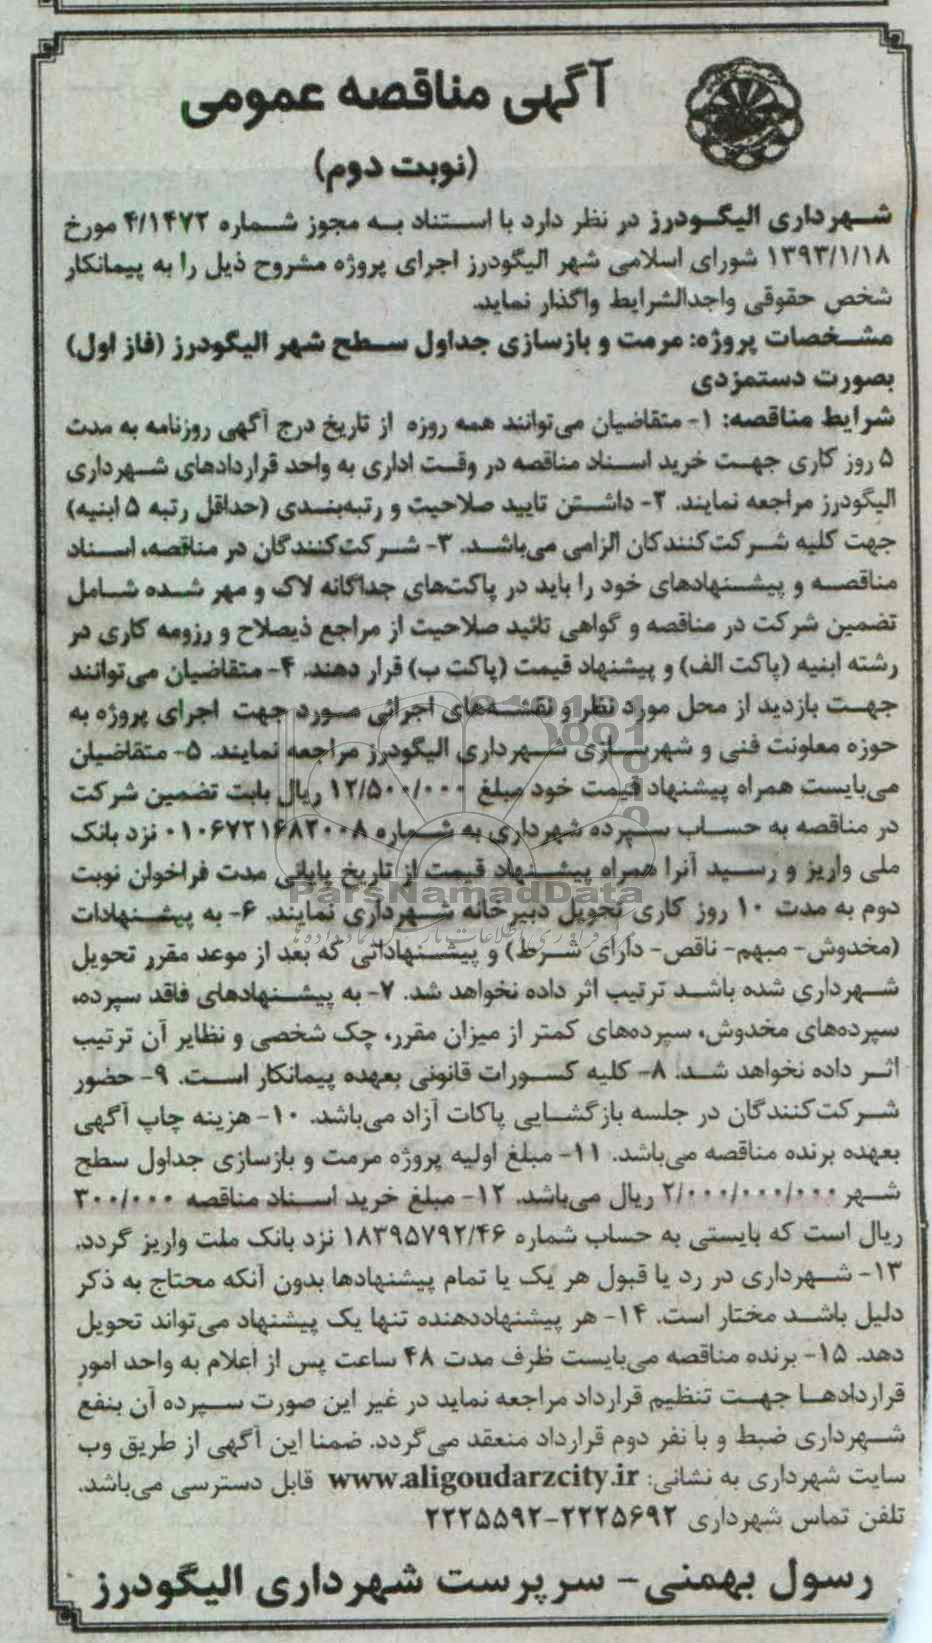 آگهی مناقصه عمومی
(نوبت دوم)
شهرداری الیگودرز در نظر دارد با استناد به مجوز شماره ۴/۱۴۷۲ مورخ
۱۳۹۳/۱/۱۸ شورای اسلامی شهر الیگودرز اجرای پروژه مشروح ذیل را به پیمانکار
شخص حقوقی واجدالشرایط واگذار نماید.
مشخصات پروژه: مرمت و بازسازی جداول سطح شهر الیگودرز (فاز اول)
بصورت دستمزدی
شرایط مناقصه: ۱- متقاضیان می‌توانند همه روزه از تاریخ درج آگهی روزنامه به مدت
۵ روز کاری جهت خرید اسناد مناقصه در وقت اداری به واحد قراردادهای شهرداری
الیگودرز مراجعه نمایند. ۲- داشتن تایید صلاحیت و رتبه‌بندی (حداقل رتبه ۵ ابنیه)
جهت کلیه شرکت‌کنندگان الزامی می‌باشد. ۳- شرکت‌کنندگان در مناقصه، اسناد
مناقصه و پیشنهادهای خود را باید در پاکت‌های جداگانه لاک و مهر شده شامل
تضمین شرکت در مناقصه و گواهی تائید صلاحیت از مراجع ذیصلاح و رزومه کاری در
رشته ابنیه (پاکت الف) و پیشنهاد قیمت (پاکت ب) قرار دهند. ۴- متقاضیان می‌توانند
جهت بازدید از محل مورد نظر و نقشه‌های اجرائی مورد جهت اجرای پروژه به
حوزه معاونت فنی و شهرسازی شهرداری الیگودرز مراجعه نمایند. ۵- متقاضیان
می‌بایست همراه پیشنهاد قیمت خود مبلغ ۱۲/۵۰۰/۰۰۰ ریال بابت تضمین شرکت
در مناقصه به حساب سپرده شهرداری به شماره ۰۱۰۶۷۲۱۶۸۲۰۰۸ نزد بانک
ملی واریز و رسید آنرا همراه پیشنهاد قیمت از تاریخ پایانی مدت فراخوان نوبت
دوم به مدت ۱۰ روز کاری تحویل دبیرخانه شهرداری نمایند. ۶- به پیشنهادات
(مخدوش- مبهم- ناقص- دارای شرط) و پیشنهاداتی که بعد از موعد مقرر تحویل
شهرداری شده باشد ترتیب اثر داده نخواهد شد. ۷- به پیشنهادهای فاقد سپرده،
سپرده‌های مخدوش، سپرده‌های کمتر از میزان مقرر، چک شخصی و نظایر آن ترتیب
اثر داده نخواهد شد. ۸- کلیه کسورات قانونی بعهده پیمانکار است. ۹- حضور
شرکت‌کنندگان در جلسه بازگشایی پاکات آزاد می‌باشد. ۱۰- هزینه چاپ آگهی
بعهده برنده مناقصه می‌باشد. ۱۱- مبلغ اولیه پروژه مرمت و بازسازی جداول سطح
شهر ۲/۰۰۰/۰۰۰/۰۰۰ ریال می‌باشد. ۱۲- مبلغ خرید اسناد مناقصه ۳۰۰/۰۰۰
ریال است که بایستی به حساب شماره ۱۸۳۹۵۷۹۲/۴۶ نزد بانک ملت واریز گردد.
۱۳- شهرداری در رد یا قبول هر یک یا تمام پیشنهادها بدون آنکه محتاج به ذکر
دلیل باشد مختار است. ۱۴- هر پیشنهاددهنده تنها یک پیشنهاد می‌تواند تحویل
دهد. ۱۵- برنده مناقصه می‌بایست ظرف مدت ۴۸ ساعت پس از اعلام به واحد امور
قراردادها جهت تنظیم قرارداد مراجعه نماید در غیر این صورت سپرده آن بنفع
شهرداری ضبط و با نفر دوم قرارداد منعقد می‌گردد. ضمنا این آگهی از طریق وب
سایت شهرداری به نشانی: www.aligoudarzcity.ir قابل دسترسی می‌باشد.
تلفن تماس شهرداری ۲۲۲۵۶۹۲-۲۲۲۵۵۹۲
رسول بهمنی- سرپرست شهرداری الیگودرز
ParsNamadData